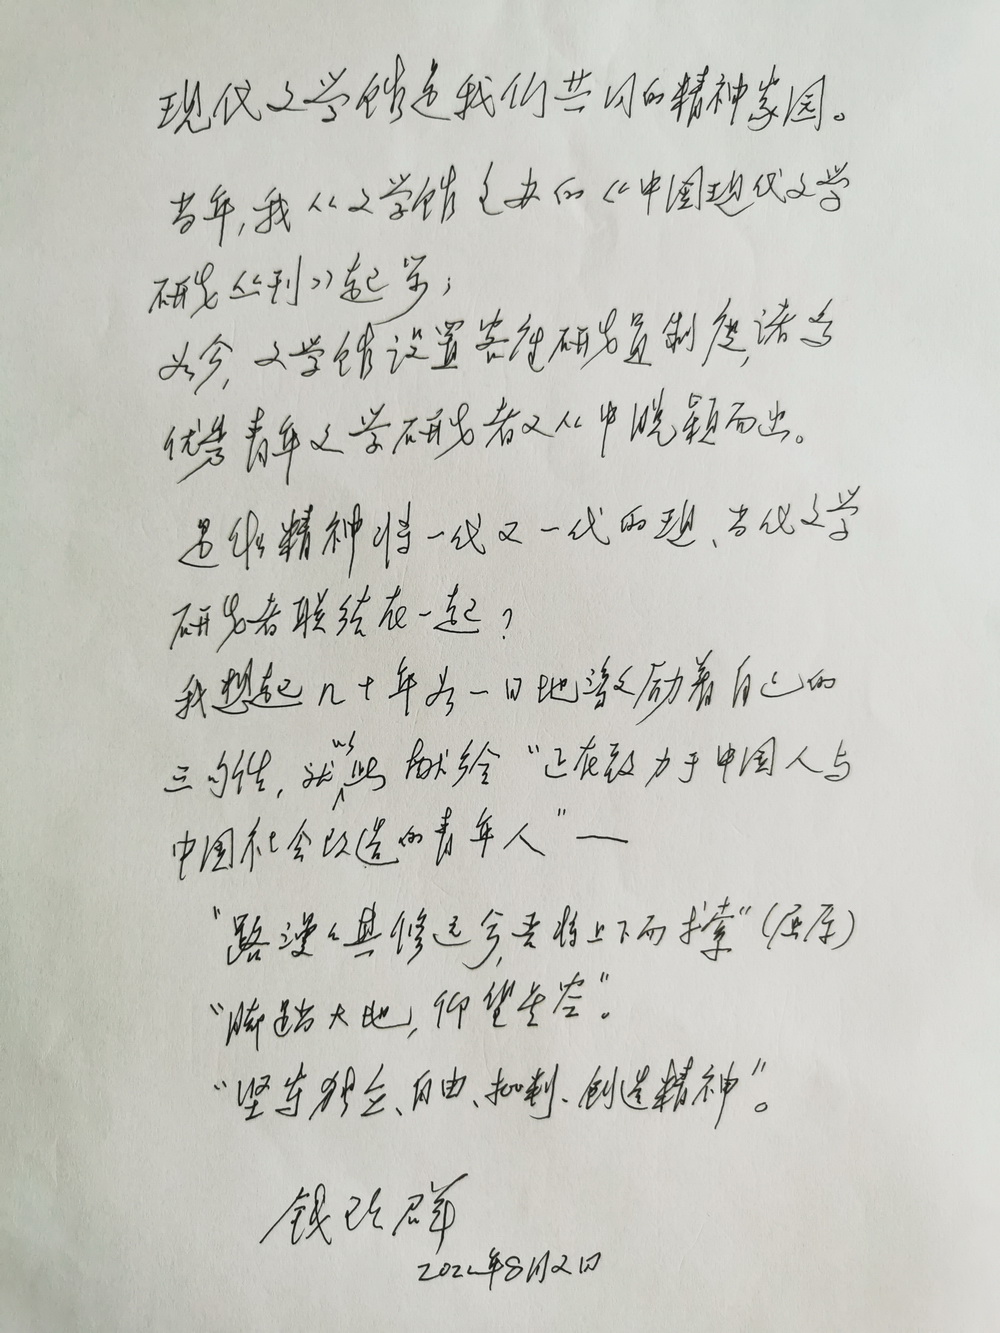 现代文学馆是我们共同的精神家园。
当年,我从文学馆主办的《中国现代文学
研究丛刊》起步;
如今,文学馆设置客座研究员制度,诸多
优秀青年文学研究者又从中脱颖而出。
是什么精神将一代又一代的现、当代文学
研究者联结在一起?
我想起几十年如一日地激励着自己的
三句话,就以此献给“正在致力于中国人与
中国社会改造的青年人”—
“路漫漫其修远兮,吾将上下而求索”(屈原)
“脚踏大地,仰望星空”。
“坚守独立、自由、批判、创造精神”。
钱理群
2022年8月2日